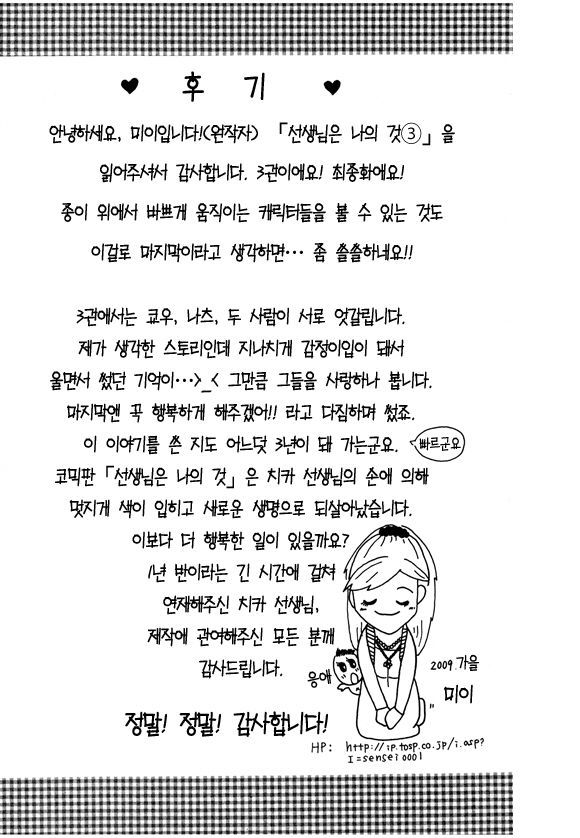 ♥ 후 기 ♥
안녕하세요, 미이입니다!(원작자) 「선생님은 나의 것③」을
읽어주셔서 감사합니다. 3권이에요! 최종화에요!
종이 위에서 바쁘게 움직이는 캐릭터들을 볼 수 있는 것도
이걸로 마지막이라고 생각하면… 좀 쓸쓸하네요!!
3권에서는 쿄우, 나츠, 두 사람이 서로 엇갈립니다.
제가 생각한 스토리인데 지나치게 감정이입이 돼서
울면서 썼던 기억이…>_< 그만큼 그들을 사랑하나 봅니다.
마지막엔 꼭 행복하게 해주겠어!! 라고 다짐하며 썼죠.
이 이야기를 쓴 지도 어느덧 3년이 돼 가는군요. 빠르군요
코믹판 「선생님은 나의 것」은 치카 선생님의 손에 의해
멋지게 색이 입히고 새로운 생명으로 되살아났습니다.
이보다 더 행복한 일이 있을까요?
1년 반이라는 긴 시간에 걸쳐
연재해주신 치카 선생님,
제작에 관여해주신 모든 분께
감사드립니다.
응애
2009. 가을
미이
정말! 정말! 감사합니다!
HP: http://ip.tosp.co.jp/i.asp?
I=sensei0001